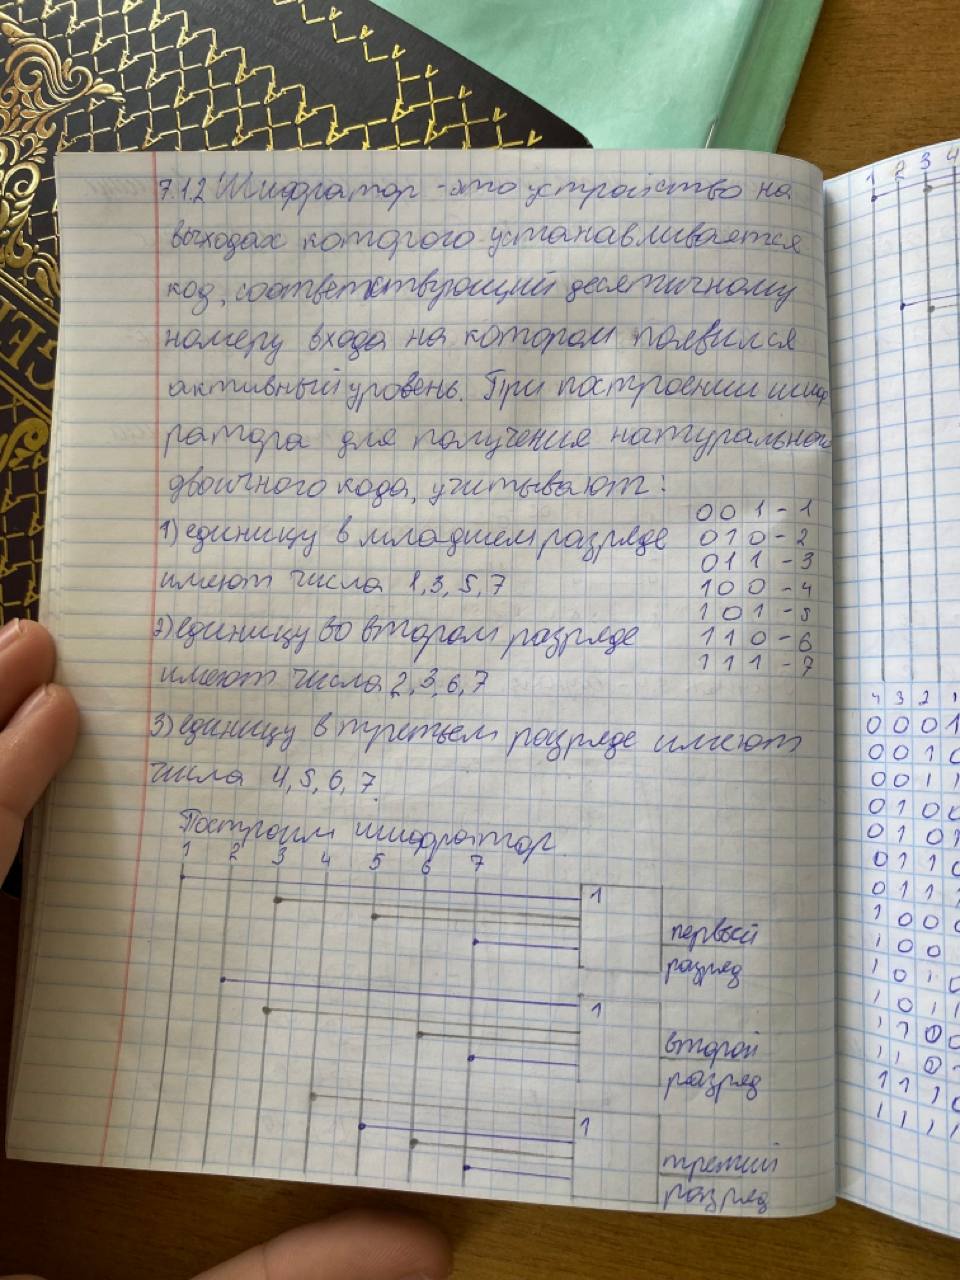 7.1.2 Шифратор - это устройство на
выходах которого устанавливается
код, соответствующий десятичному
номеру входа на котором появился
активный уровень. При построении шиф
ратора для получения натурального
двоичного кода, учитывают:
1) единицу в младшем разряде
имеют числа 1,3,5,7
2) единицу во втором разряде
имеют числа 2,3,6,7
3) единицу в третьем разряде имеют
числа 4,5,6,7
001-1
010-2
011-3
100-4
101-5
110-6
111-7
Построим шифратор
1 2 3 4 5 6 7
1
первый
разряд
1
второй
разряд
1
третий
разряд
1 2 3 4
4 3 2 1
0001
0010
0011
0100
0101
0110
0111
1000
100
1010
1011
1100
110
1110
1111